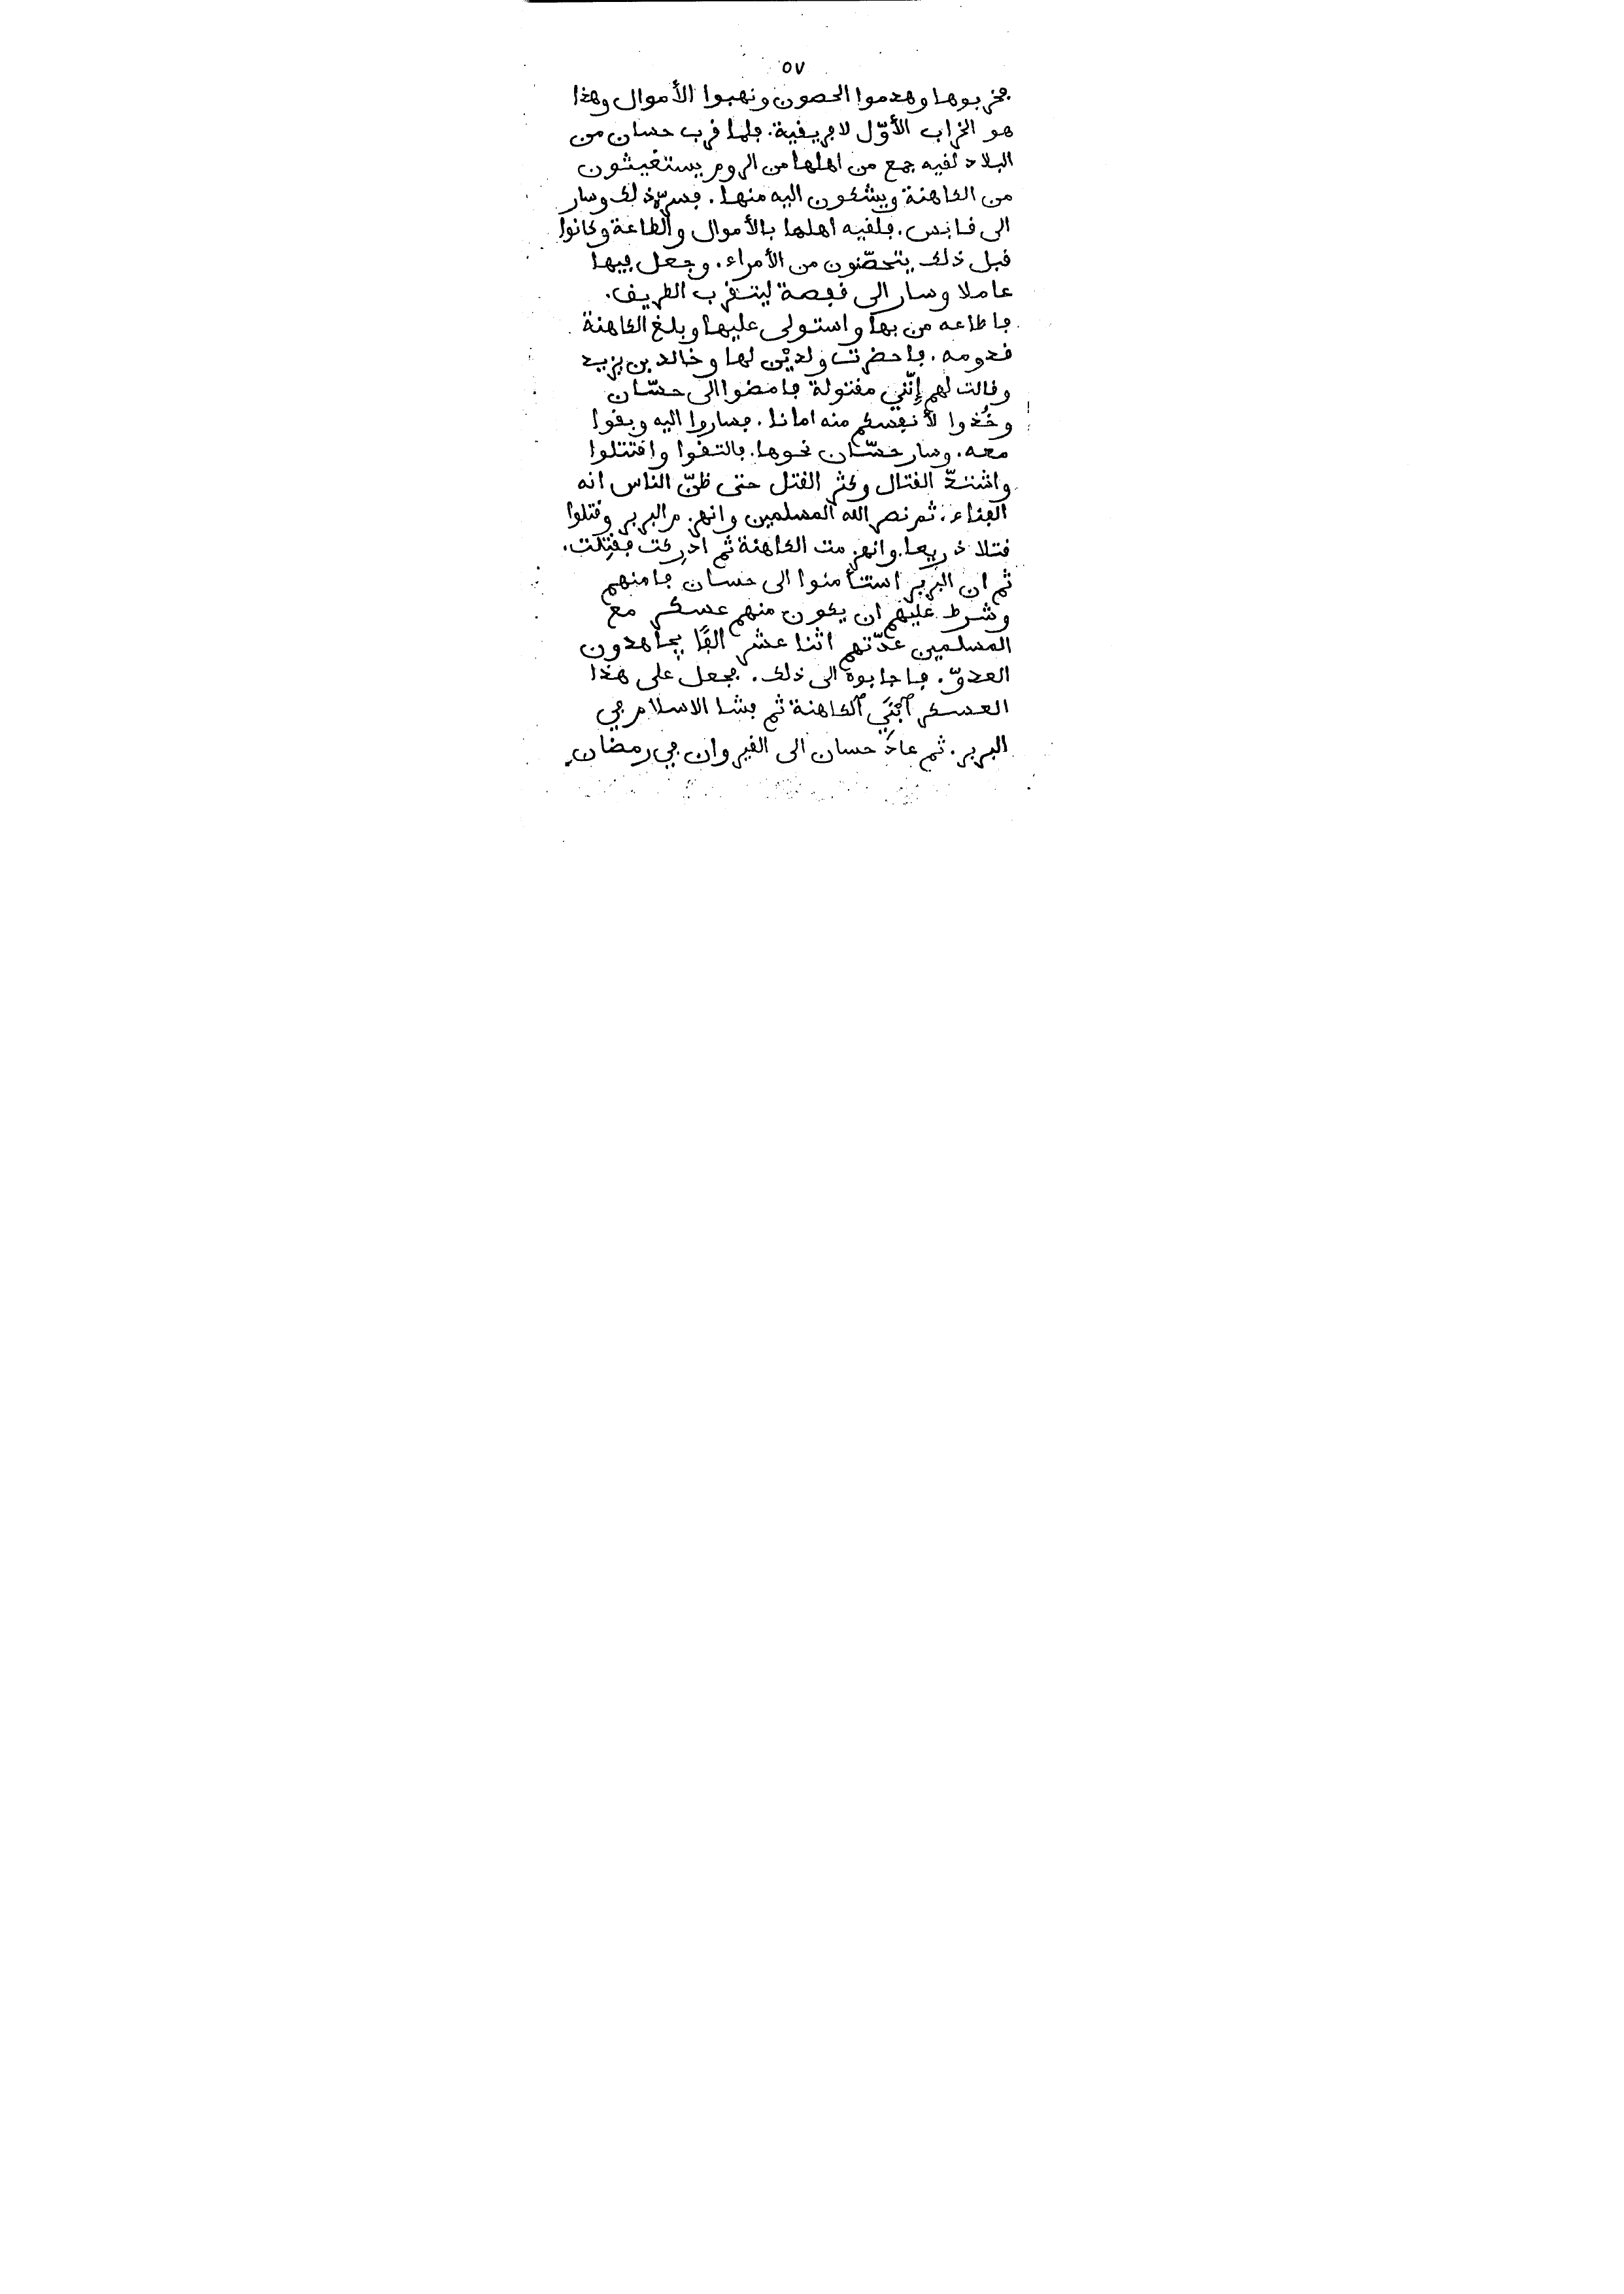 ٥٧
فخربوها وهدموا الحصون ونهبوا الأموال وهذا
هو الخراب الأوّل لافريقية. فلما قرب حسان من
البلاد لقيه جمع من اهلها من الروم يستغيثون
من الكاهنة ويشكون اليه منها. فسرّه ذلك وسار
الى قابس. فلقيه اهلها بالأموال والطاعة وكانوا
قبل ذلك يتحصّنون من الأمراء. وجعل فيها
عاملا وسار الى قفصة ليتقرب الطريق.
فاطاعه من بها واستولى عليها وبلغ الكاهنة
قدومه. فاحضرت ولديْن لها وخالد بن يزيد
وقالت لهم إِنّني مقتولة فامضوا الى حسّان
وخُذوا لأنفسكم منه امانا. فساروا اليه وبقوا
معه. وسار حسّان نحوها. فالتقوا واقتتلوا
واشتدّ القتال وكثر القتل حتى ظنّ الناس انه
الفناء. ثم نصر الله المسلمين وانهزم البربر وقتلوا
قتلا ذريعا. وانهزمت الكاهنة ثم ادرِكت فقتِلت.
ثم ان البربر استأمنوا الى حسان فامنهم
وشرط عليهم ان يكون منهم عسكر مع
المسلمين عدّتهم اثنا عشر الفًا يجاهدون
العدوّ. فاجابوه الى ذلك. فجعل على هذا
العسكر ٱبْنَي ٱلكاهنة ثم فشا الاسلام في
البربر. ثم عادَ حسان الى القيروان في رمضان